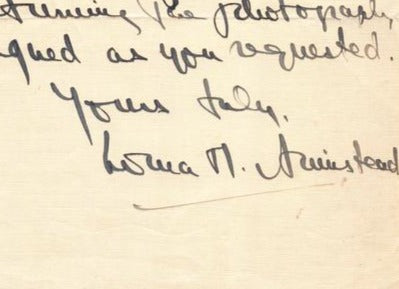 eturning the photograph,
gned as you requested.
Yours truly,
Lorna M.